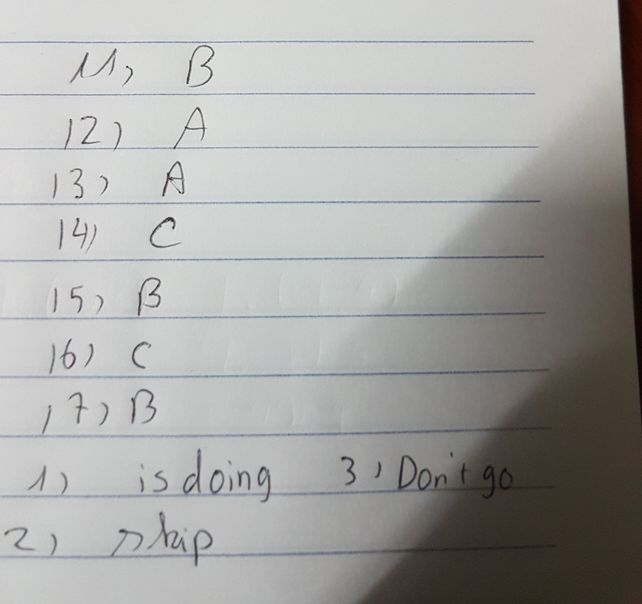 11) B
12) A
13) A
14) C
15) B
16) C
17) B
1) is doing 3) Don't go
2) skip